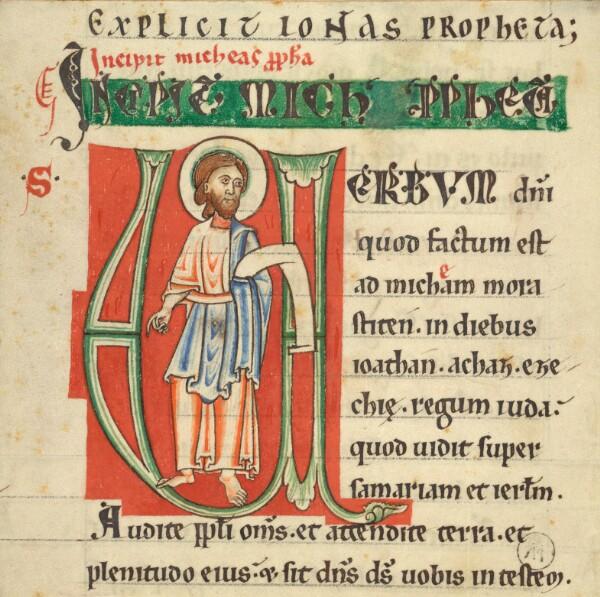 EXPLICIT IONAS PROPHETA;
Incipit micheas ppha
INCIPIT MICH PPHETA
S.
VERBVM dni
quod factum est
ad micheam mora
stiten. in diebus
ioathan. achaz. eze
chię. regum iuda.
quod uidit super
samariam et ierlm.
Audite ppli oms. et attendite terra. et
plenitudo eius. & sit dns ds uobis in testem.